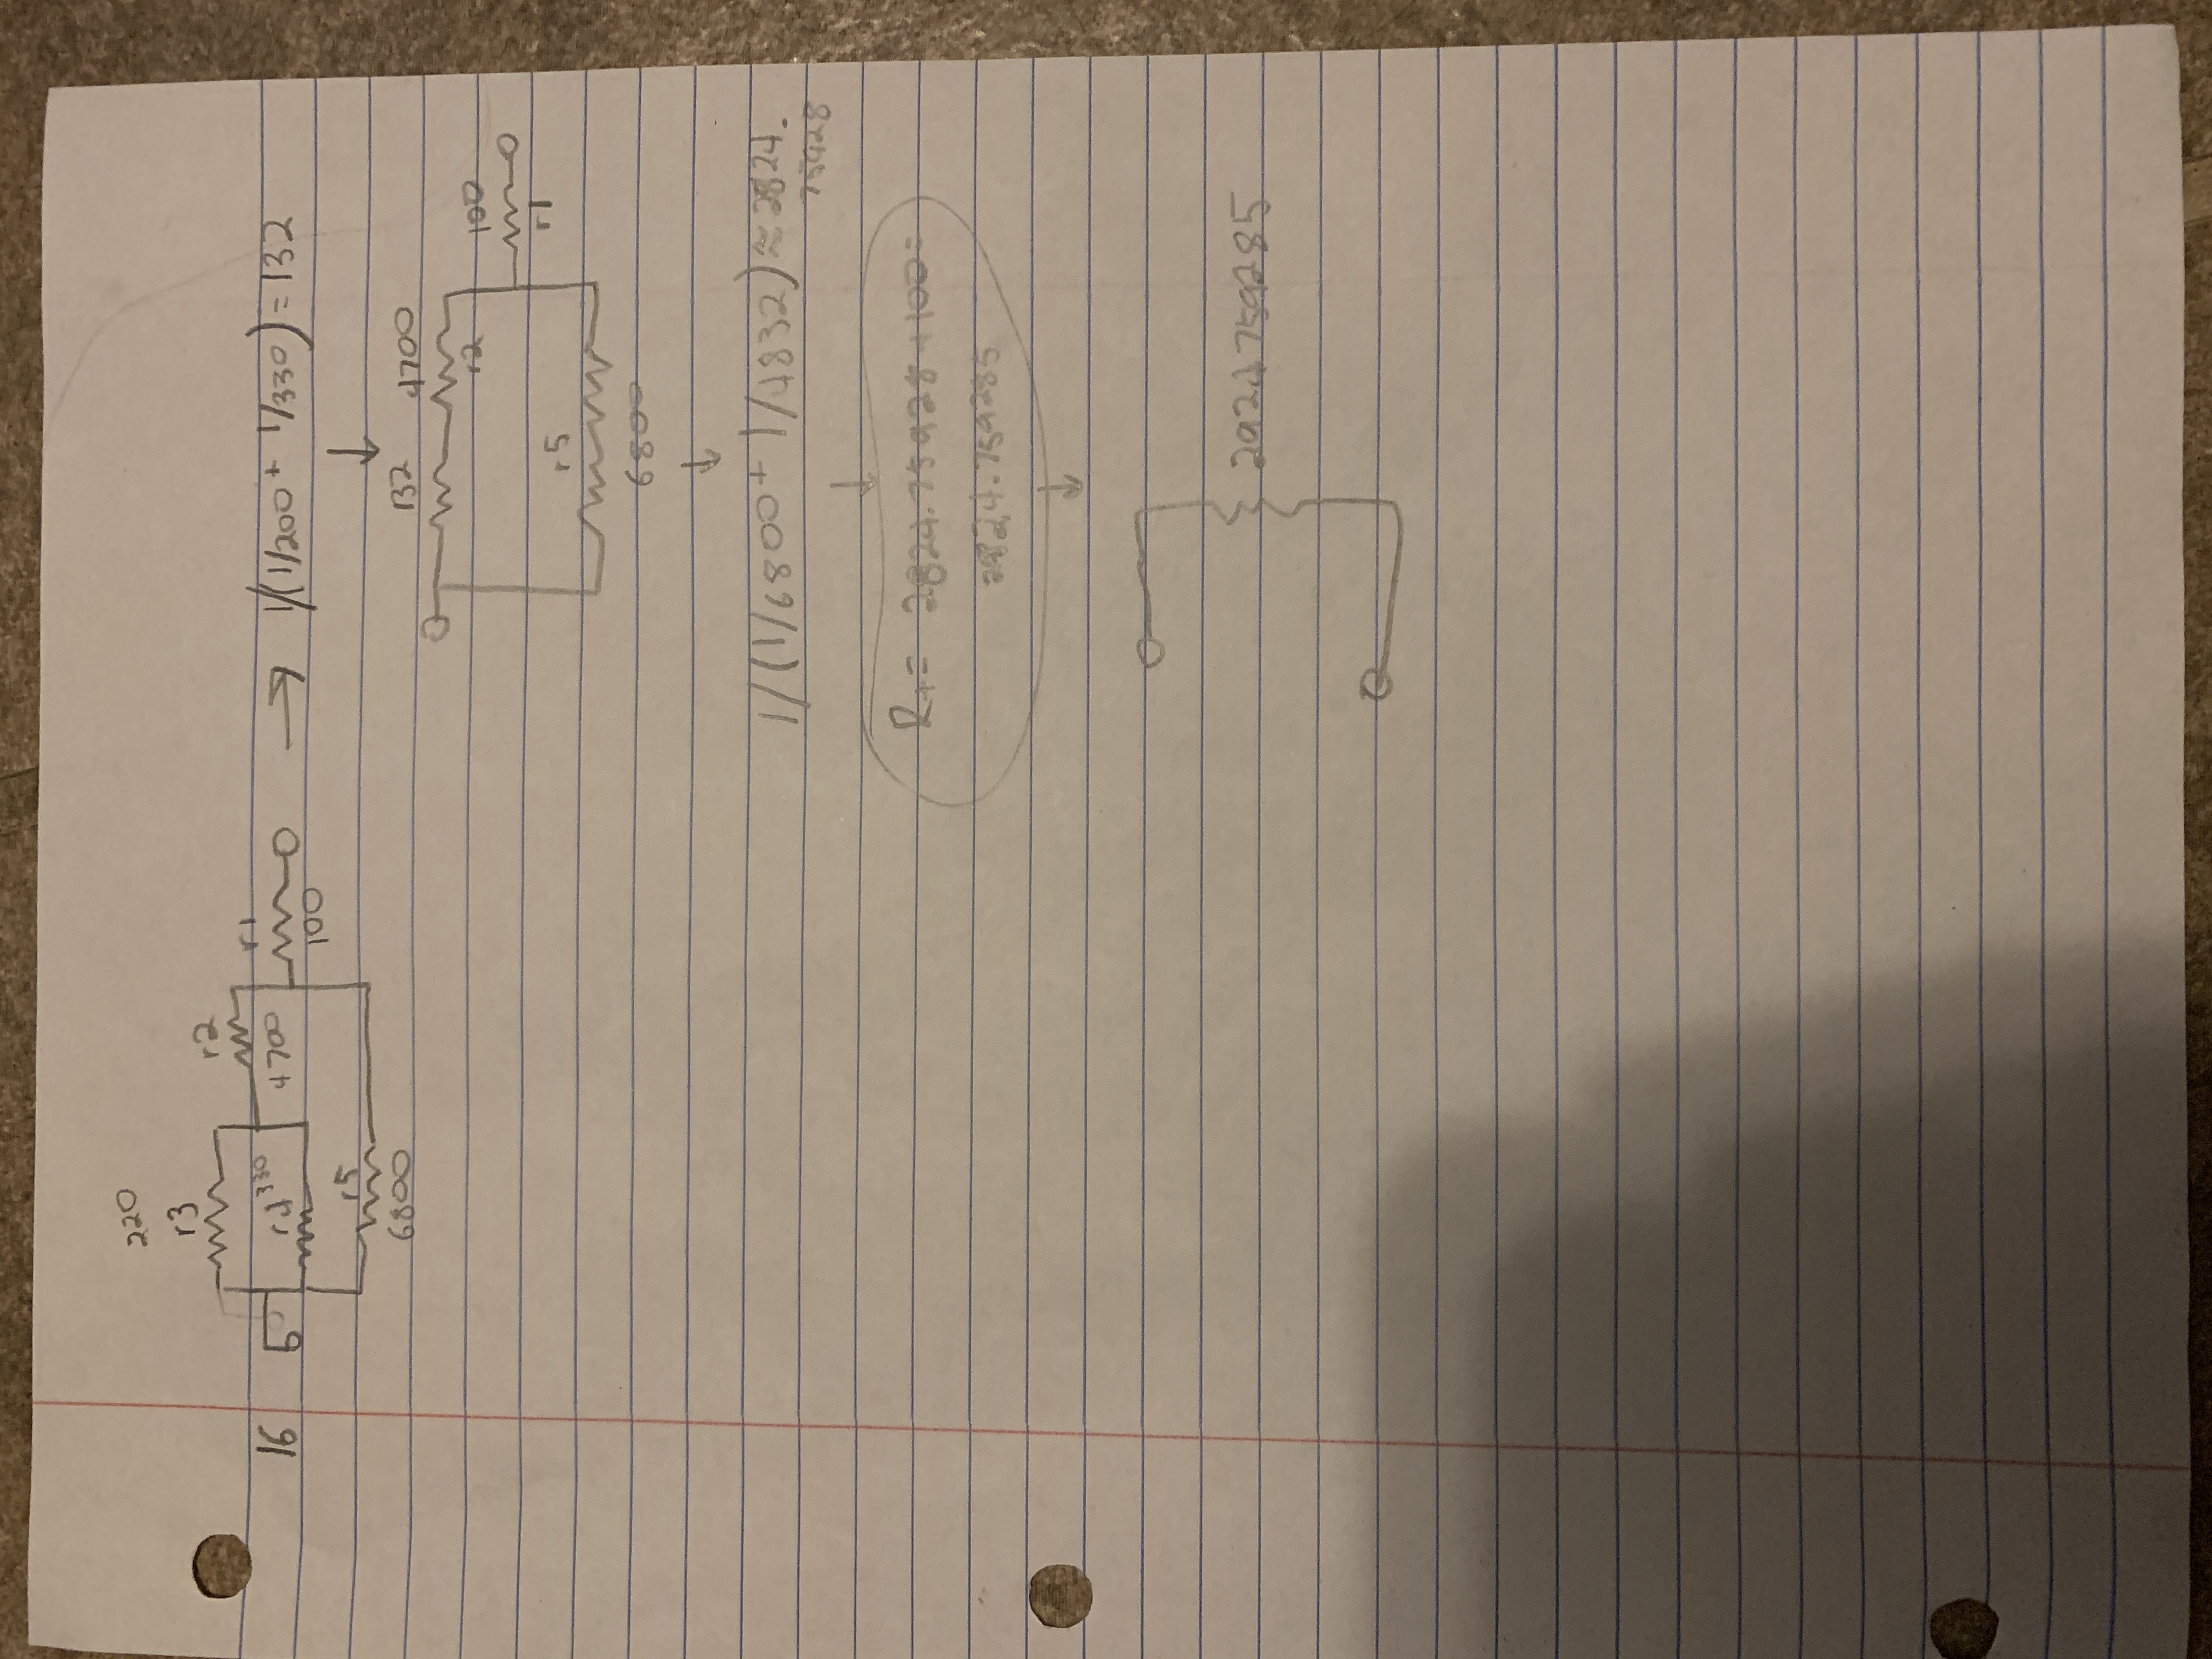 220
r3
r2
16
r4 330
4700
r1
100
r5
6800
→ 1/(1/200 + 1/330) = 132
↓
132 4700
r2
100
r1
r5
6800
↓
1/(1/6800 + 1/4832) ≈ 2824.
75928
↓
R+= 2824.75928+100=
2924.759285
↓
2924.759285